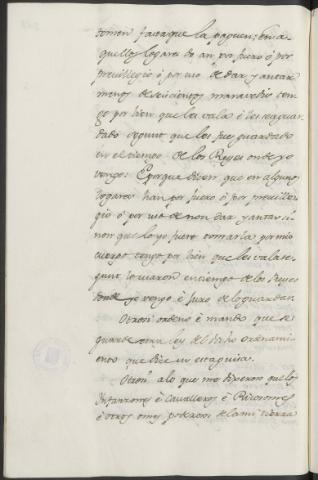 tomen fata que la paguen: En a
quellos logares do an por fuero ó por
previllegio ó por uso de dar yantar
menos de seiscientos maravedis ten
go por bien que les vala é les sea guar
dado segunt que les fue guardado
en el tiempo de los Reyes onde yo
vengo: E porque dicen que en algunos
logares han por fuero ó por preville
gio ó por uso de non dar yantar si
non que lo yo fuere tomar la por mio
cuerpo tengo por bien que les vala se
gunt lo usaron en tiempo de los Reyes
onde yo vengo é juro de lo guardar.
Otrosi ordeno é mando que se
guarde otra ley del dicho ordenami
ento que dice en esta guisa.
Otrosi a lo que me dixeron que los
Infanzones é Cavalleros é Ricosomes
é otros omes poderosos de la mi tierra